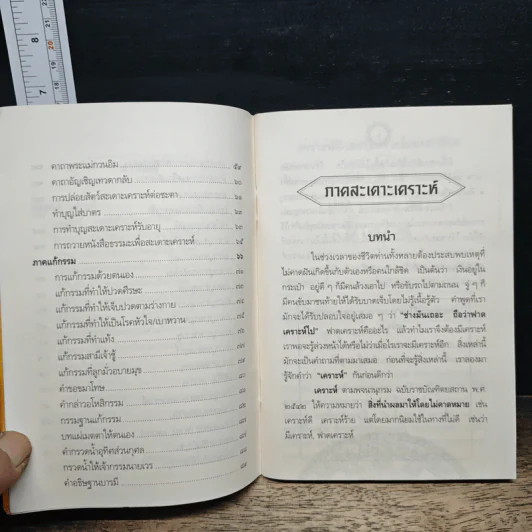 คาถาพระแม่กวนอิม ๕๙
คาถาอัญเชิญเทวดากลับ ๖๐
การปล่อยสัตว์สะเดาะเคราะห์ต่อชะตา ๖๑
ทำบุญใส่บาตร
การทำบุญสะเดาะเคราะห์รับอายุ
การถวายหนังสือธรรมะเพื่อสะเดาะเคราะห์ ๖๕
ภาคแก้กรรม ๖๖
การแก้กรรมด้วยตนเอง
แก้กรรมที่ทำให้ปวดศีรษะ
แก้กรรมที่ทำให้เจ็บปวดตามร่างกาย
แก้กรรมที่ทำให้เป็นโรคหัวใจ/เบาหวาน
แก้กรรมที่ทำแท้ง
แก้กรรมสามีเจ้าชู้
แก้กรรมที่ลูกมัวอบายมุข
คำขอขมาโทษ
คำกล่าวอโหสิกรรม
กรรมฐานแก้กรรม
บทแผ่เมตตาให้ตนเอง
คำกรวดน้ำอุทิศส่วนกุศล
กรวดน้ำให้เจ้ากรรมนายเวร
คำอธิษฐานบารมี
ภาคสะเดาะเคราะห์
บทนำ
ในช่วงเวลาของชีวิตท่านทั้งหลายต้องประสบพบเหตุที่
ไม่คาดฝันเกิดขึ้นกับตัวเองหรือคนใกล้ชิด เป็นต้นว่า เงินอยู่ใน
กระเป๋า อยู่ดี ๆ ก็มีคนล้วงเอาไป หรือขับรถไปตามถนน จู่ ๆ ก็
มีคนขับมาชนท้ายให้ได้รับบาดเจ็บโดยไม่รู้เนื้อรู้ตัว คำพูดที่เรา
มักจะได้รับปลอบใจอยู่เสมอ ๆ ว่า "ช่างมันเถอะ ถือว่าฟาด
เคราะห์ไป" ฟาดเคราะห์คืออะไร แล้วทำไมเราจึงต้องมีเคราะห์
เราพอจะรู้ล่วงหน้าได้หรือไม่ว่าเมื่อไรเราจะมีเคราะห์อีก สิ่งเหล่านี้
มักจะเป็นคำถามที่ตามมาเสมอ ก่อนที่จะรู้สิ่งเหล่านี้ เราลองมา
รู้จักคำว่า "เคราะห์" กันก่อนดีกว่า
เคราะห์ ตามพจนานุกรม ฉบับราชบัณฑิตยสถาน พ.ศ.
๒๕๔๒ ให้ความหมายว่า สิ่งที่นำผลมาให้โดยไม่คาดหมาย เช่น
เคราะห์ดี เคราะห์ร้าย แต่โดยมากนิยมใช้ในทางที่ไม่ดี เช่นว่า
มีเคราะห์, ฟาดเคราะห์
8
7
21
20
19
18